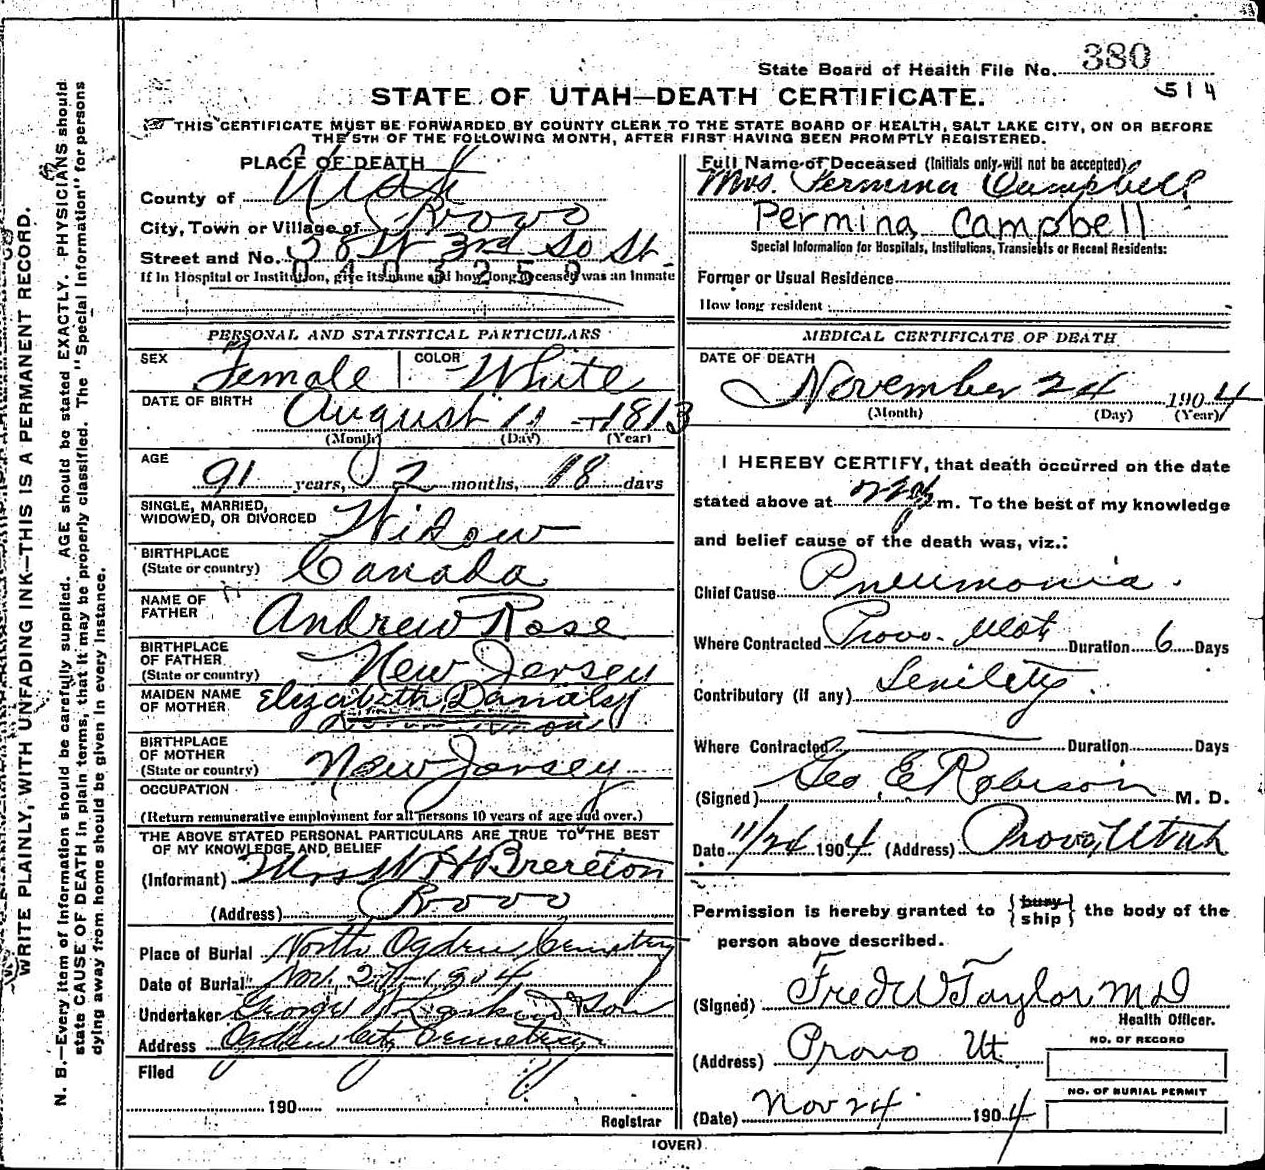 State Board of Health File No. 380
514
STATE OF UTAH—DEATH CERTIFICATE.
THIS CERTIFICATE MUST BE FORWARDED BY COUNTY CLERK TO THE STATE BOARD OF HEALTH, SALT LAKE CITY, ON OR BEFORE
THE 5TH OF THE FOLLOWING MONTH, AFTER FIRST HAVING BEEN PROMPTLY REGISTERED.
WRITE PLAINLY, WITH UNFADING INK—THIS IS A PERMANENT RECORD.
N. B.—Every item of information should be carefully supplied. AGE should be stated EXACTLY. PHYSICIANS should
state CAUSE OF DEATH in plain terms, that it may be properly classified. The "Special Information" for persons
dying away from home should be given in every instance.
PLACE OF DEATH
County of Utah
City, Town or Village of Provo
Street and No. W 3rd So St.
0403250
If In Hospital or Institution, give its name and how long deceased was an Inmate
PERSONAL AND STATISTICAL PARTICULARS
SEX Female COLOR White
DATE OF BIRTH August 11 - 1813
(Month) (Day) (Year)
AGE 91 years, 2 months, 18 days
SINGLE, MARRIED,
WIDOWED, OR DIVORCED Widow
BIRTHPLACE
(State or country) Canada
NAME OF
FATHER Andrew Rose
BIRTHPLACE
OF FATHER
(State or country) New Jersey
MAIDEN NAME
OF MOTHER Elizabeth
BIRTHPLACE
OF MOTHER
(State or country) New Jersey
OCCUPATION
(Return remunerative employment for all persons 10 years of age and over.)
THE ABOVE STATED PERSONAL PARTICULARS ARE TRUE TO THE BEST
OF MY KNOWLEDGE AND BELIEF
(Informant) Mrs W H Brereton
(Address) Provo
Place of Burial North Ogden Cemetery
Date of Burial Nov. 27-1904
Undertaker George W Larkin & Son
Address Ogden City Cemetery
Filed
190
Registrar
Full Name of Deceased (Initials only will not be accepted)
Mrs. Permina Campbell
Permina Campbell
Special Information for Hospitals, Institutions, Transients or Recent Residents:
Former or Usual Residence
How long resident
MEDICAL CERTIFICATE OF DEATH
DATE OF DEATH
November 24 1904
(Month) (Day) (Year)
I HEREBY CERTIFY, that death occurred on the date
stated above at m. To the best of my knowledge
and belief cause of the death was, viz.:
Chief Cause Pneumonia.
Where Contracted Provo. Utah Duration 6 Days
Contributory (if any) Senility
Where Contracted Duration Days
(Signed) Geo E Robison M. D.
Date 11/24 1904 (Address) Provo, Utah
Permission is hereby granted to {bury ship} the body of the
person above described.
(Signed) Fred W Taylor M D
Health Officer.
(Address) Provo Ut
NO. OF RECORD
NO. OF BURIAL PERMIT
(Date) Nov 24 1904
(OVER)